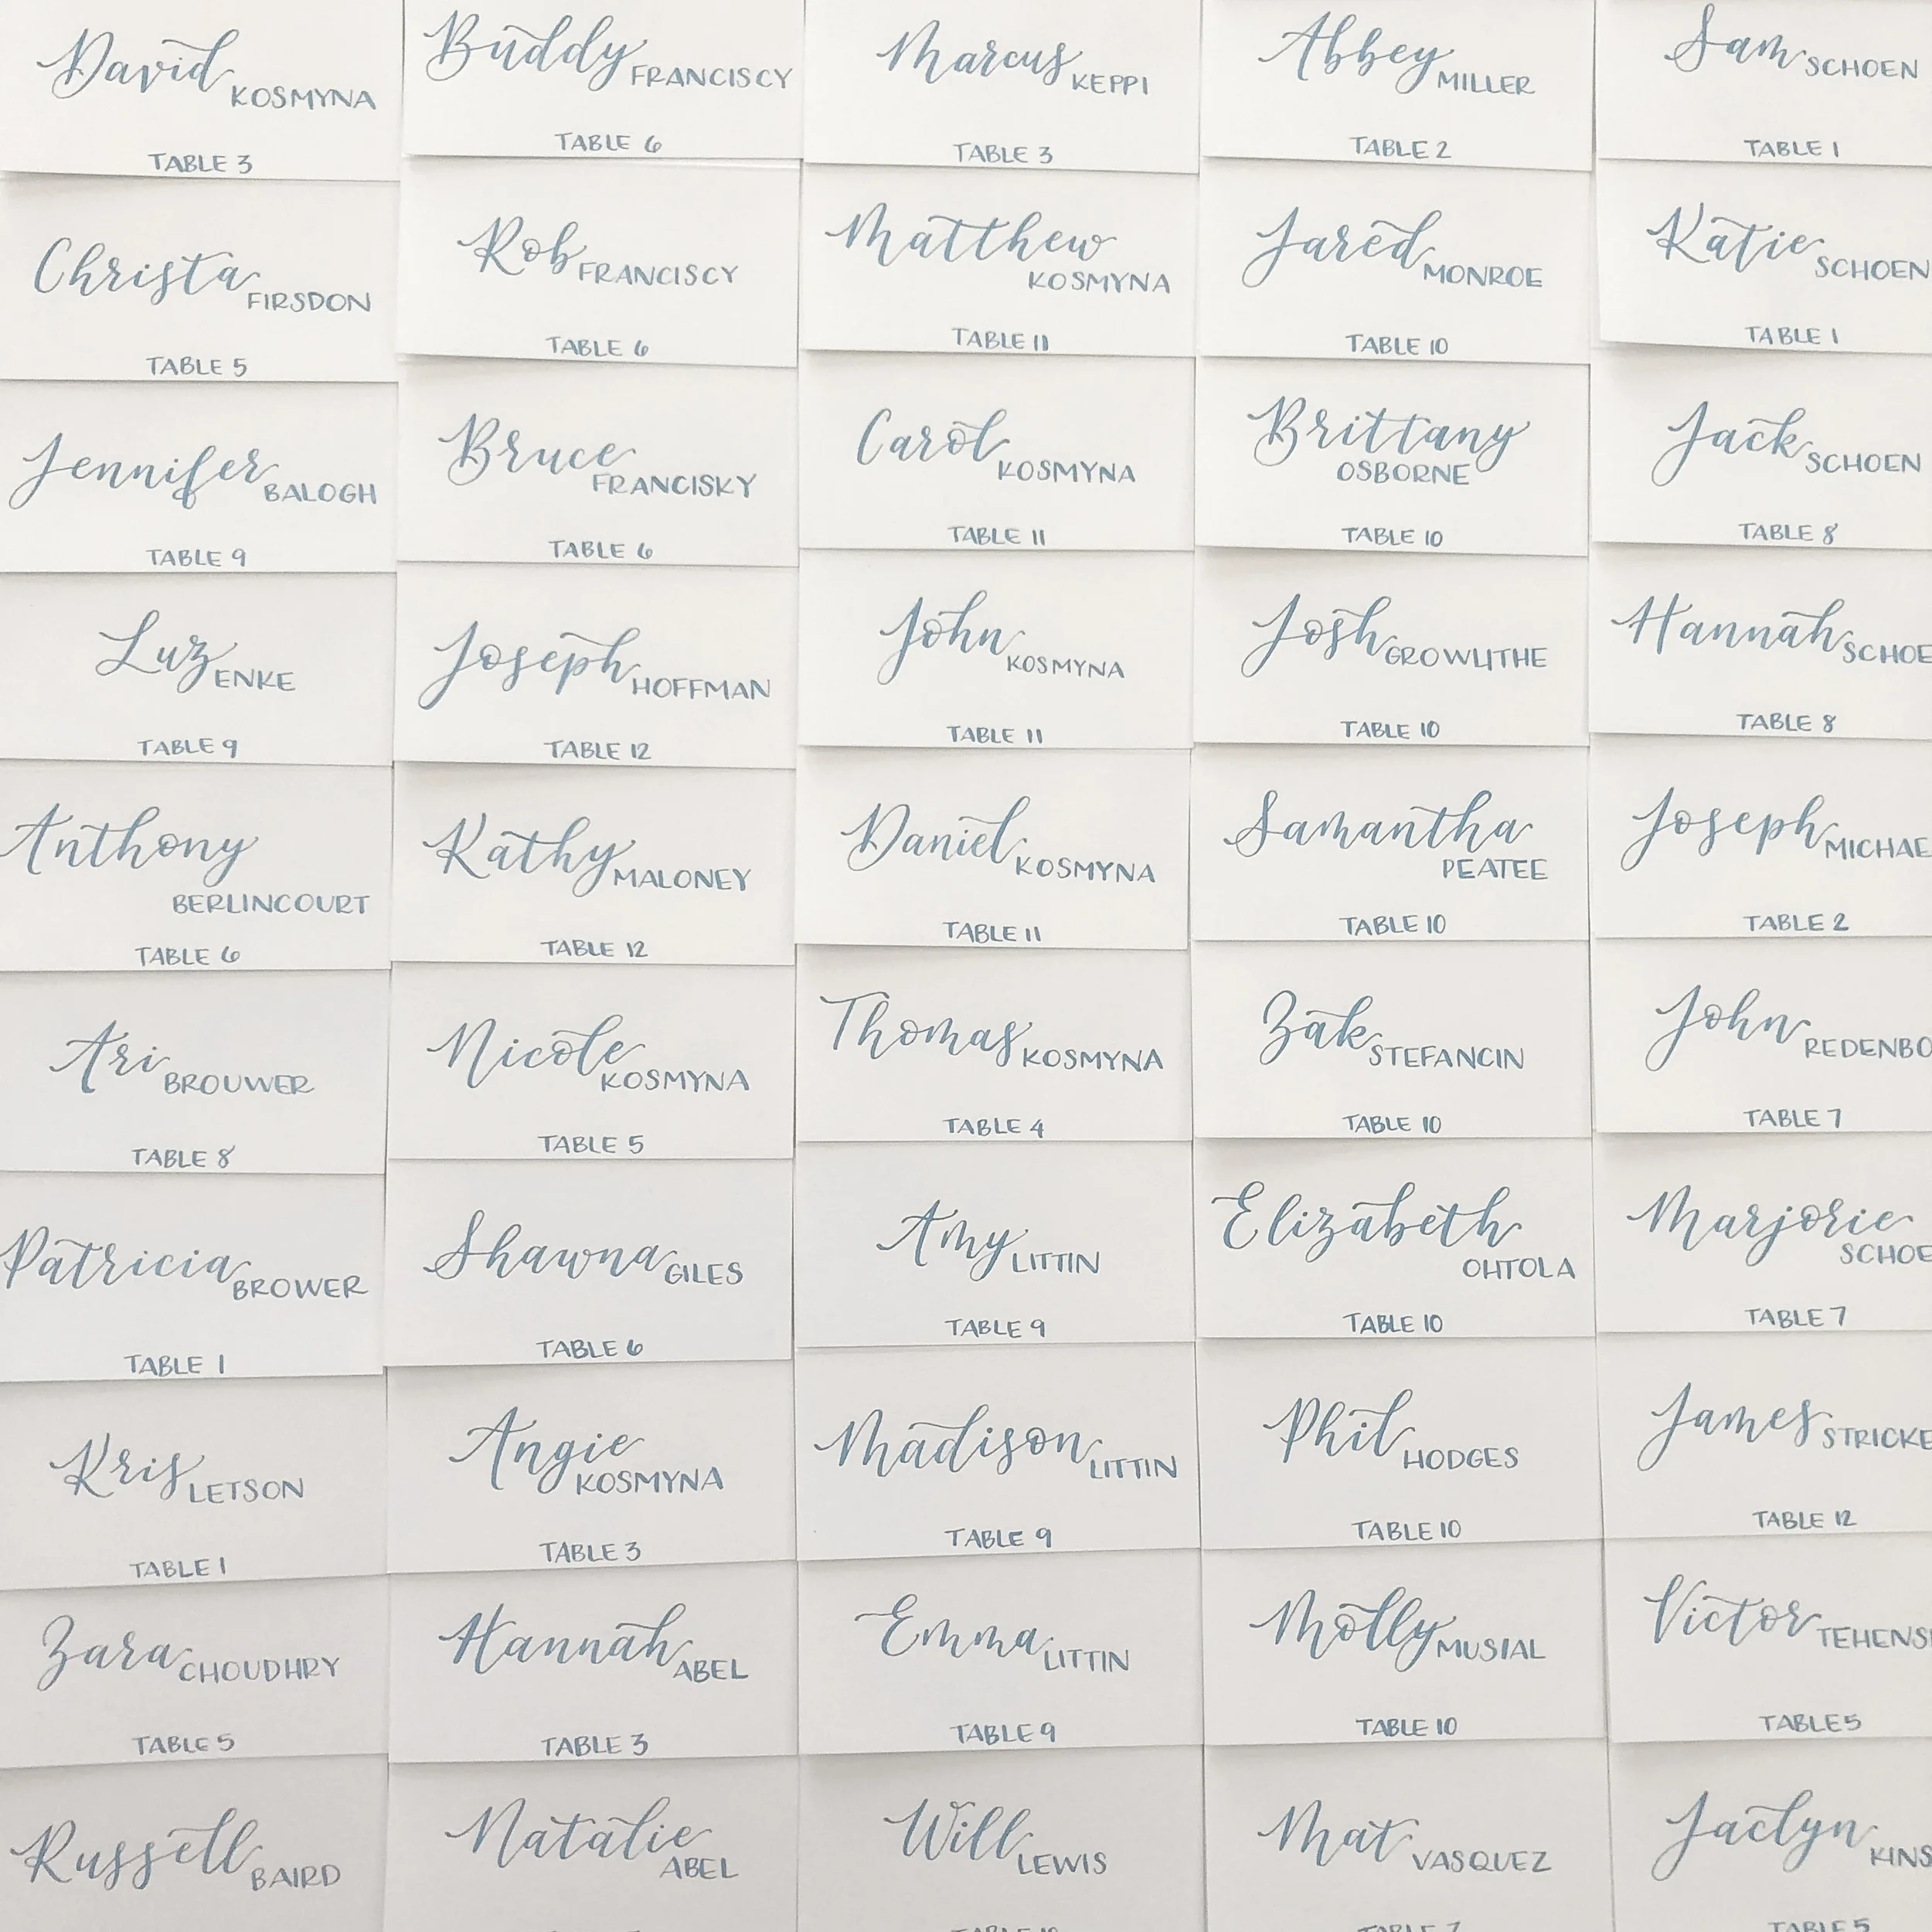 David KOSMYNA
TABLE 3
Christa FIRSDON
TABLE 5
Jennifer BALOGH
TABLE 9
Luz ENKE
TABLE 9
Anthony
BERLINCOURT
TABLE 6
Ari BROUWER
TABLE 8
Patricia BROWER
TABLE 1
Kris LETSON
TABLE 1
Zara CHOUDHRY
TABLE 5
Russell BAIRD
Buddy FRANCISCY
TABLE 6
Rob FRANCISCY
TABLE 6
Bruce
FRANCISKY
TABLE 6
Joseph HOFFMAN
TABLE 12
Kathy MALONEY
TABLE 12
Nicole
KOSMYNA
TABLE 5
Shawna GILES
TABLE 6
Angie
KOSMYNA
TABLE 3
Hannah ABEL
TABLE 3
Natalie
ABEL
Marcus KEPPI
TABLE 3
Matthew
KOSMYNA
TABLE 11
Carol KOSMYNA
TABLE 11
John KOSMYNA
TABLE 11
Daniel KOSMYNA
TABLE 11
Thomas KOSMYNA
TABLE 4
Amy LITTIN
TABLE 9
Madison LITTIN
TABLE 9
Emma LITTIN
TABLE 9
Will LEWIS
Abbey MILLER
TABLE 2
Jared MONROE
TABLE 10
Brittany
OSBORNE
TABLE 10
Josh GROWLITHE
TABLE 10
Samantha
PEATEE
TABLE 10
Zak STEFANCIN
TABLE 10
Elizabeth
OHTOLA
TABLE 10
Phil HODGES
TABLE 10
Molly MUSIAL
TABLE 10
Mat VASQUEZ
TABLE 7
Sam SCHOEN
TABLE 1
Katie SCHOEN
TABLE 1
Jack SCHOEN
TABLE 8
Hannah SCHOE
TABLE 8
Joseph MICHAE
TABLE 2
John REDENBO
TABLE 7
Marjorie
SCHOE
TABLE 7
James STRICKE
TABLE 12
Victor TEHENS
TABLE 5
Jaclyn KINS
TABLE 5